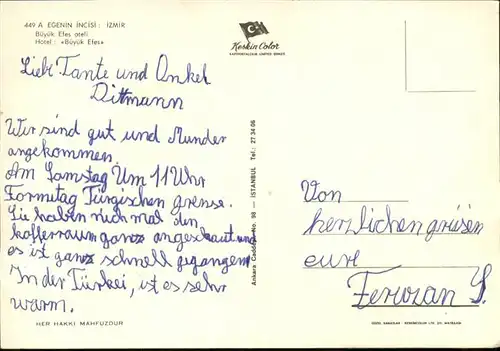 449 A EGENIN İNCİSİ : İZMİR
Büyük Efes oteli
Hotel : «Büyük Efes»
Keskin Color
KARTPOSTALCILIK LIMITED ŞİRKETİ
Liebe Tante und Onkel
Dittmann
Wir sind gut und Munder
angekommen.
Am Samstag Um 11 Uhr
Formitag Türgischen grense.
Sie haben nich mal den
kofferraum ganz angeschaut und
es ist ganz schnell gegangen
In der Türkei, ist es sehr
warm.
HER HAKKI MAHFUZDUR
Ankara Caddesi No. 98 — İSTANBUL Tel.: 27 34 06
Von
herzlichen grüsen
eure
Ferozan S.